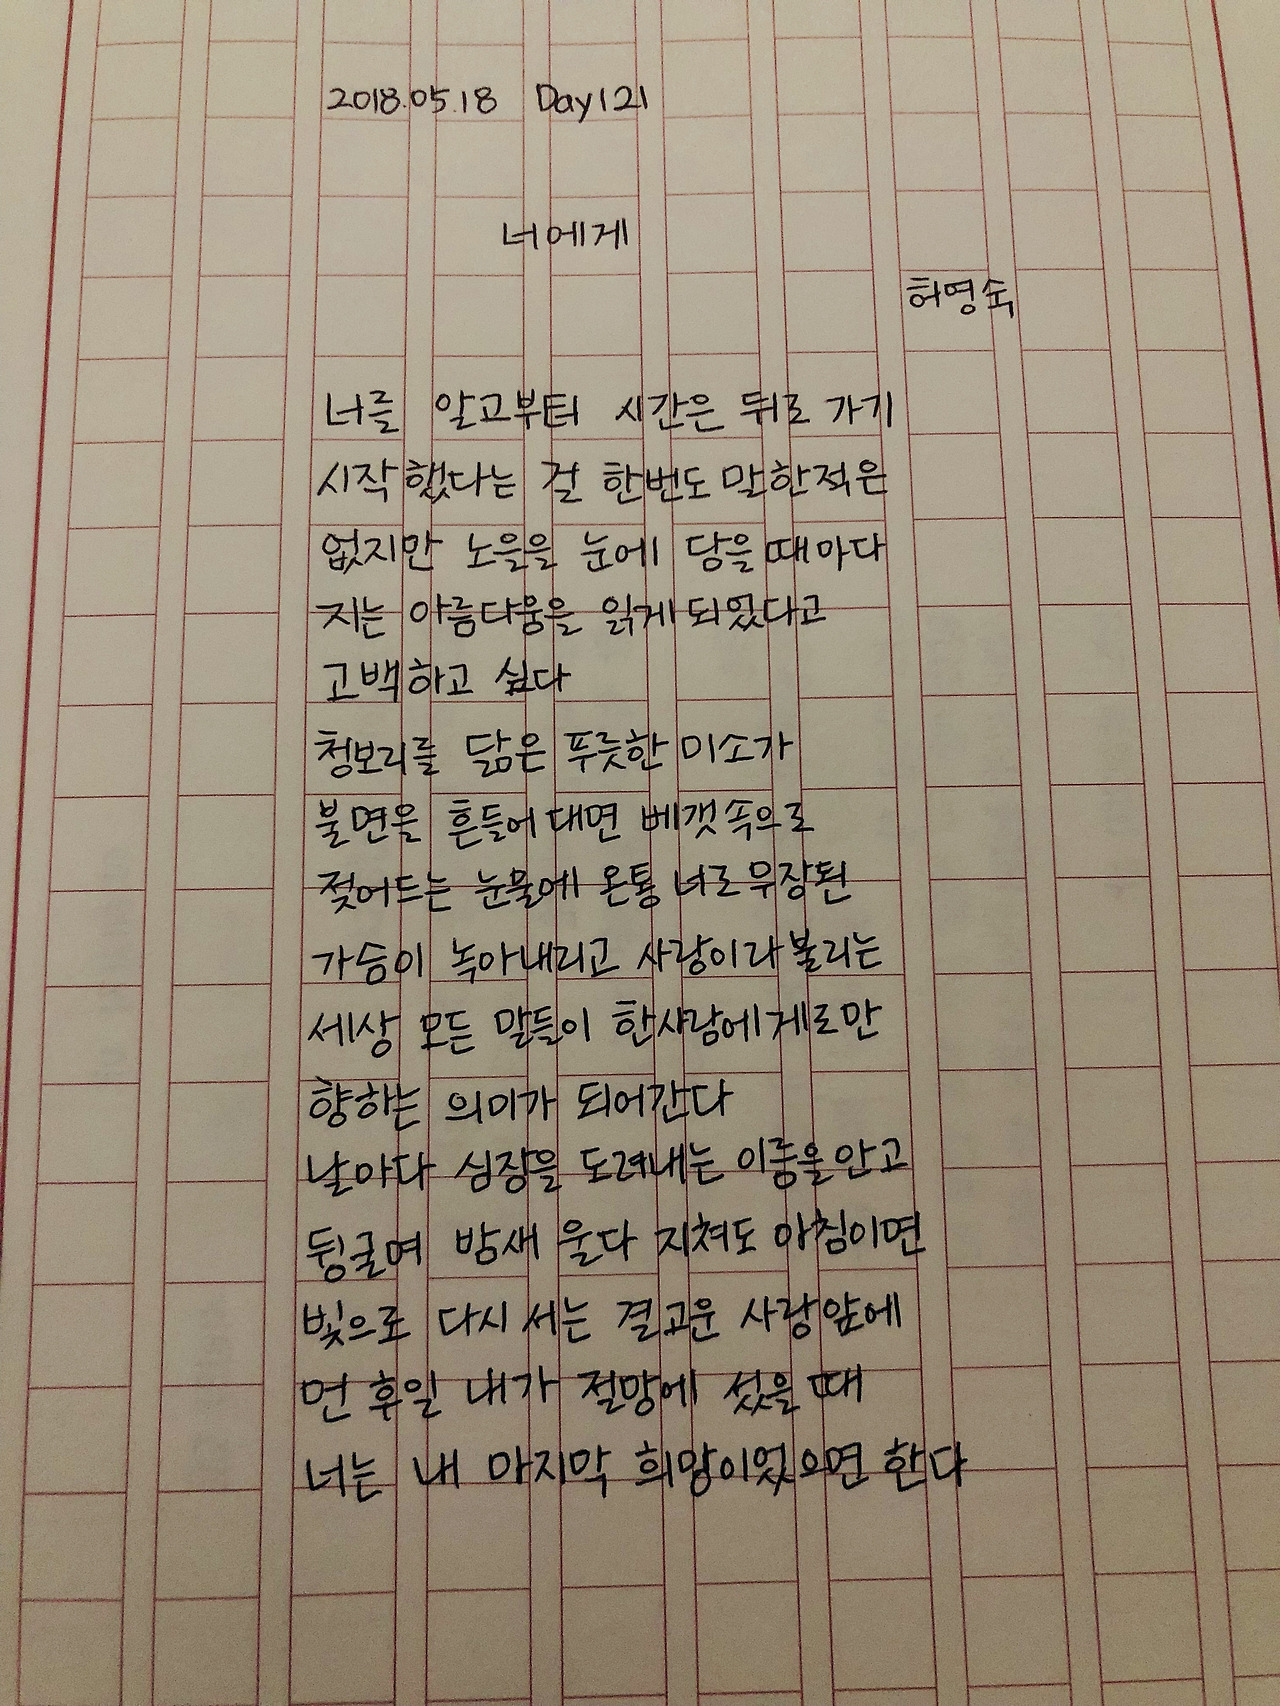 2018.05.18 Day121
너에게
허영숙
너를 알고부터 시간은 뒤로 가기
시작했다는 걸 한번도 말한적은
없지만 노을을 눈에 담을때마다
지는 아름다움을 읽게 되었다고
고백하고 싶다
청보리를 닮은 푸릇한 미소가
불면을 흔들어대면 베갯속으로
젖어드는 눈물에 온통 너로 무장된
가슴이 녹아내리고 사랑이라 불리는
세상 모든 말들이 한사람에게로만
향하는 의미가 되어간다
날마다 심장을 도려내는 이름을 안고
뒹굴며 밤새 울다 지쳐도 아침이면
빛으로 다시 서는 결고운 사랑앞에
먼 후일 내가 절망에 섰을 때
너는 내 마지막 희망이었으면 한다